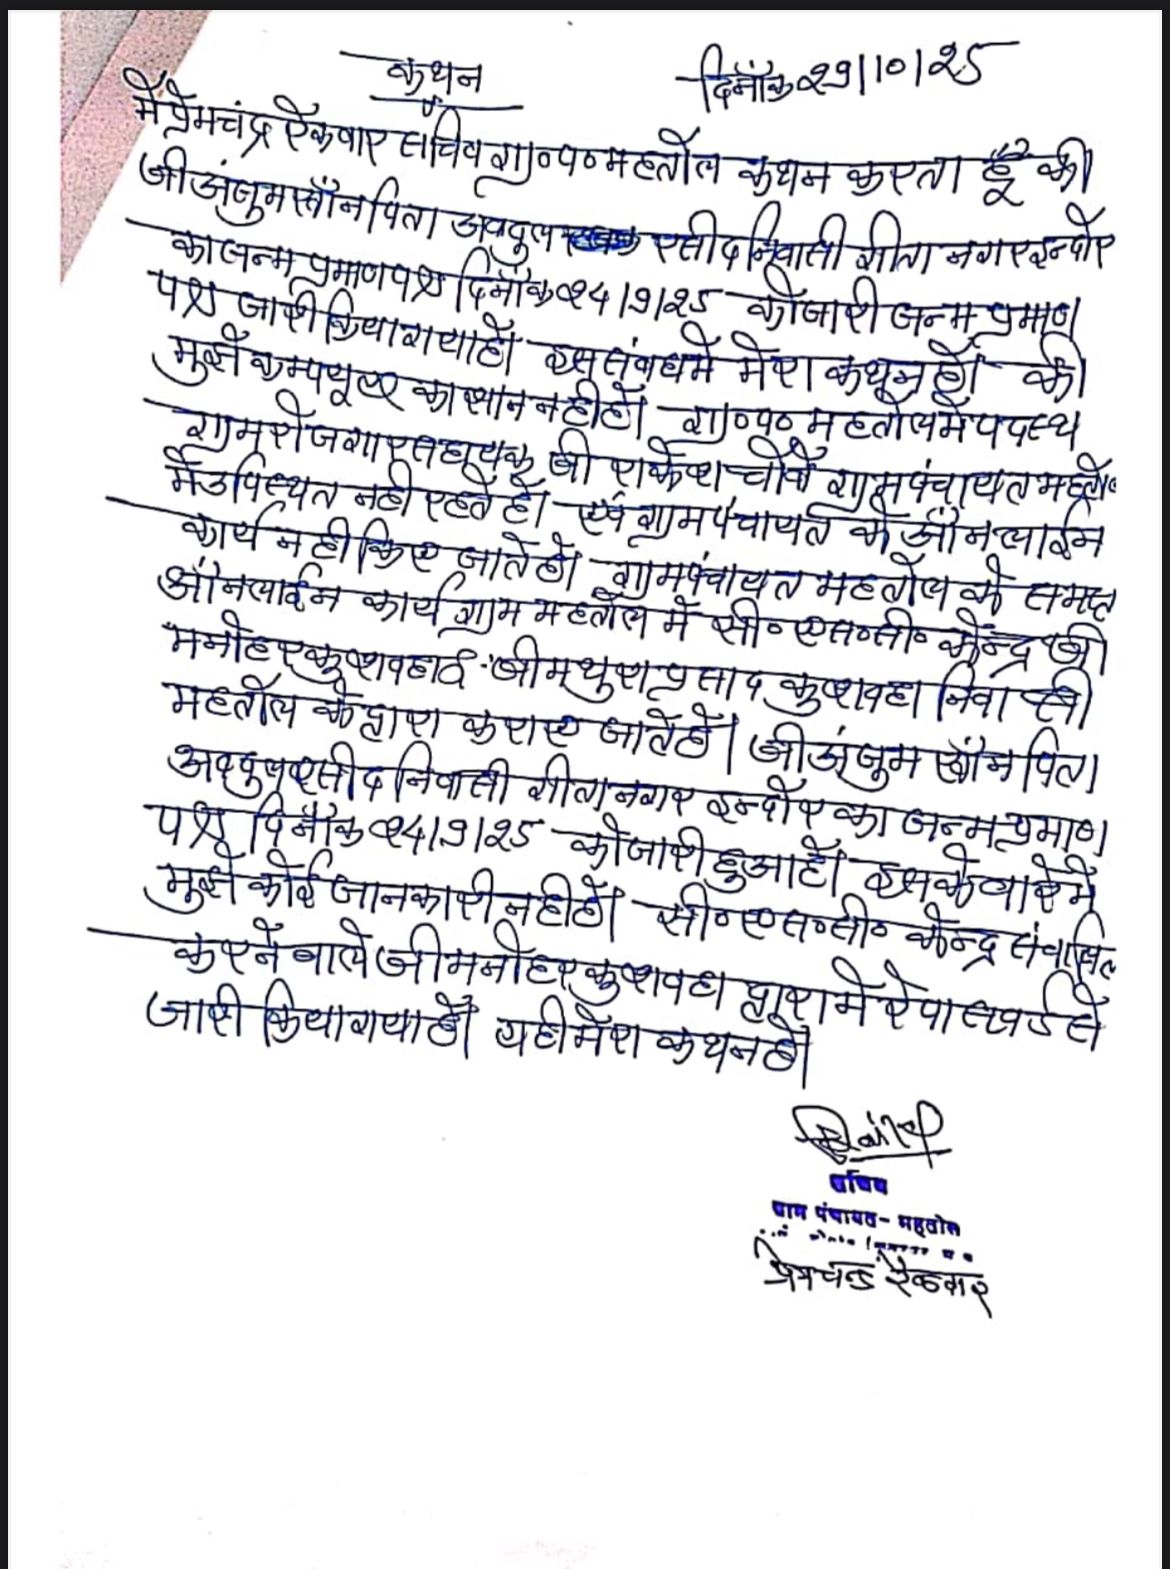 कथन
दिनाँक 29/10/25
मैं प्रेमचंद्र रैकवार सचिव ग्रा०प० महतौल कथन करता हूँ की
श्री अंजुम खाँन पिता अवदुल रसीद निवासी गीता नगर इन्दौर
का जन्म प्रमाण पत्र दिनाँक 24/9/25 को जारी जन्म प्रमाण
पत्र जारी किया गया है। इस संबधमे मेरा कथन है। की
मुझे कम्पयूटर का ज्ञान नही है। ग्रा०प० महतौल मे पदस्थ
ग्राम रोजगार सहायक श्री राकेश चौवे ग्राम पंचायत महतौल
मै उपस्थित नही रहते है। एवं ग्राम पंचायत के आँनलाईन
कार्य नही किए जाते है। ग्राम पंचायत महतौल के समस्त
आँनलाईन कार्य ग्राम महतौल मे सी० एस० सी० केन्द्र श्री
मनोहर कुशवहा श्री मथुरा प्रसाद कुशवहा निवासी
महतौल के द्वारा कराए जाते है। श्री अंजुम खाँन पिता
अवदुल रसीद निवासी गीता नगर इन्दौर का जन्म प्रमाण
पत्र दिनाँक 24/9/25 को जारी हुआ है। इसके वारे मै
मुझे कोई जानकारी नही है। सी० एस० सी० केन्द्र संचालित
करने वाले श्री मनोहर कुशवहा द्वारा मेरे पासवर्ड से
जारी किया गया है। यही मेरा कथन है।
सचिव
ग्राम पंचायत - महतौल
प्रेमचन्द्र रैकवार